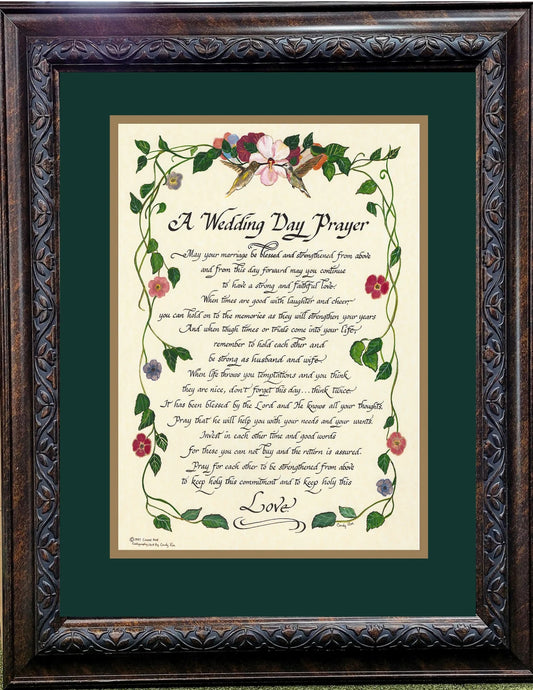 A Wedding Day Prayer
May your marriage be blessed and strengthened from above
and from this day forward may you continue
to have a strong and faithful love.
When times are good with laughter and cheer,
you can hold on to the memories as they will strengthen your years
And when tough times or trials come into your life,
remember to hold each other and
be strong as husband and wife.
When life throws you temptations and you think
they are nice, don't forget this day... think twice.
It has been blessed by the Lord and He knows all your thoughts.
Pray that he will help you with your needs and your wants.
Invest in each other time and good words
for these you can not buy and the return is assured.
Pray for each other to be strengthened from above
to keep holy this commitment and to keep holy this
Love.